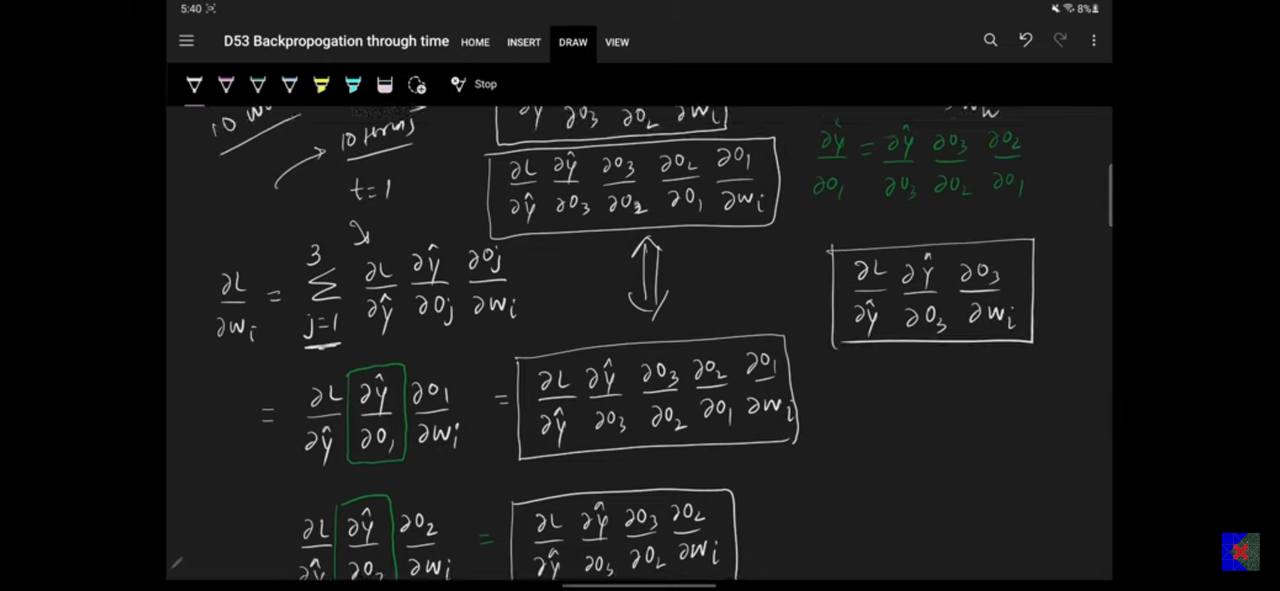 5:40 8%
D53 Backpropogation through time HOME INSERT DRAW VIEW
Stop
10 terms
t=1
∂ŷ ∂o3 ∂o2 ∂wi
∂L/∂ŷ ∂ŷ/∂o3 ∂o3/∂o2 ∂o2/∂o1 ∂o1/∂wi
∂ŷ/∂o1 = ∂ŷ/∂o3 ∂o3/∂o2 ∂o2/∂o1
∂L/∂wi = 3 Σ j=1 ∂L/∂ŷ ∂ŷ/∂oj ∂oj/∂wi
∂L/∂ŷ ∂ŷ/∂o3 ∂o3/∂wi
= ∂L/∂ŷ ∂ŷ/∂o1 ∂o1/∂wi = ∂L/∂ŷ ∂ŷ/∂o3 ∂o3/∂o2 ∂o2/∂o1 ∂o1/∂wi
∂L/∂ŷ ∂ŷ/∂o2 ∂o2/∂wi = ∂L/∂ŷ ∂ŷ/∂o3 ∂o3/∂o2 ∂o2/∂wi